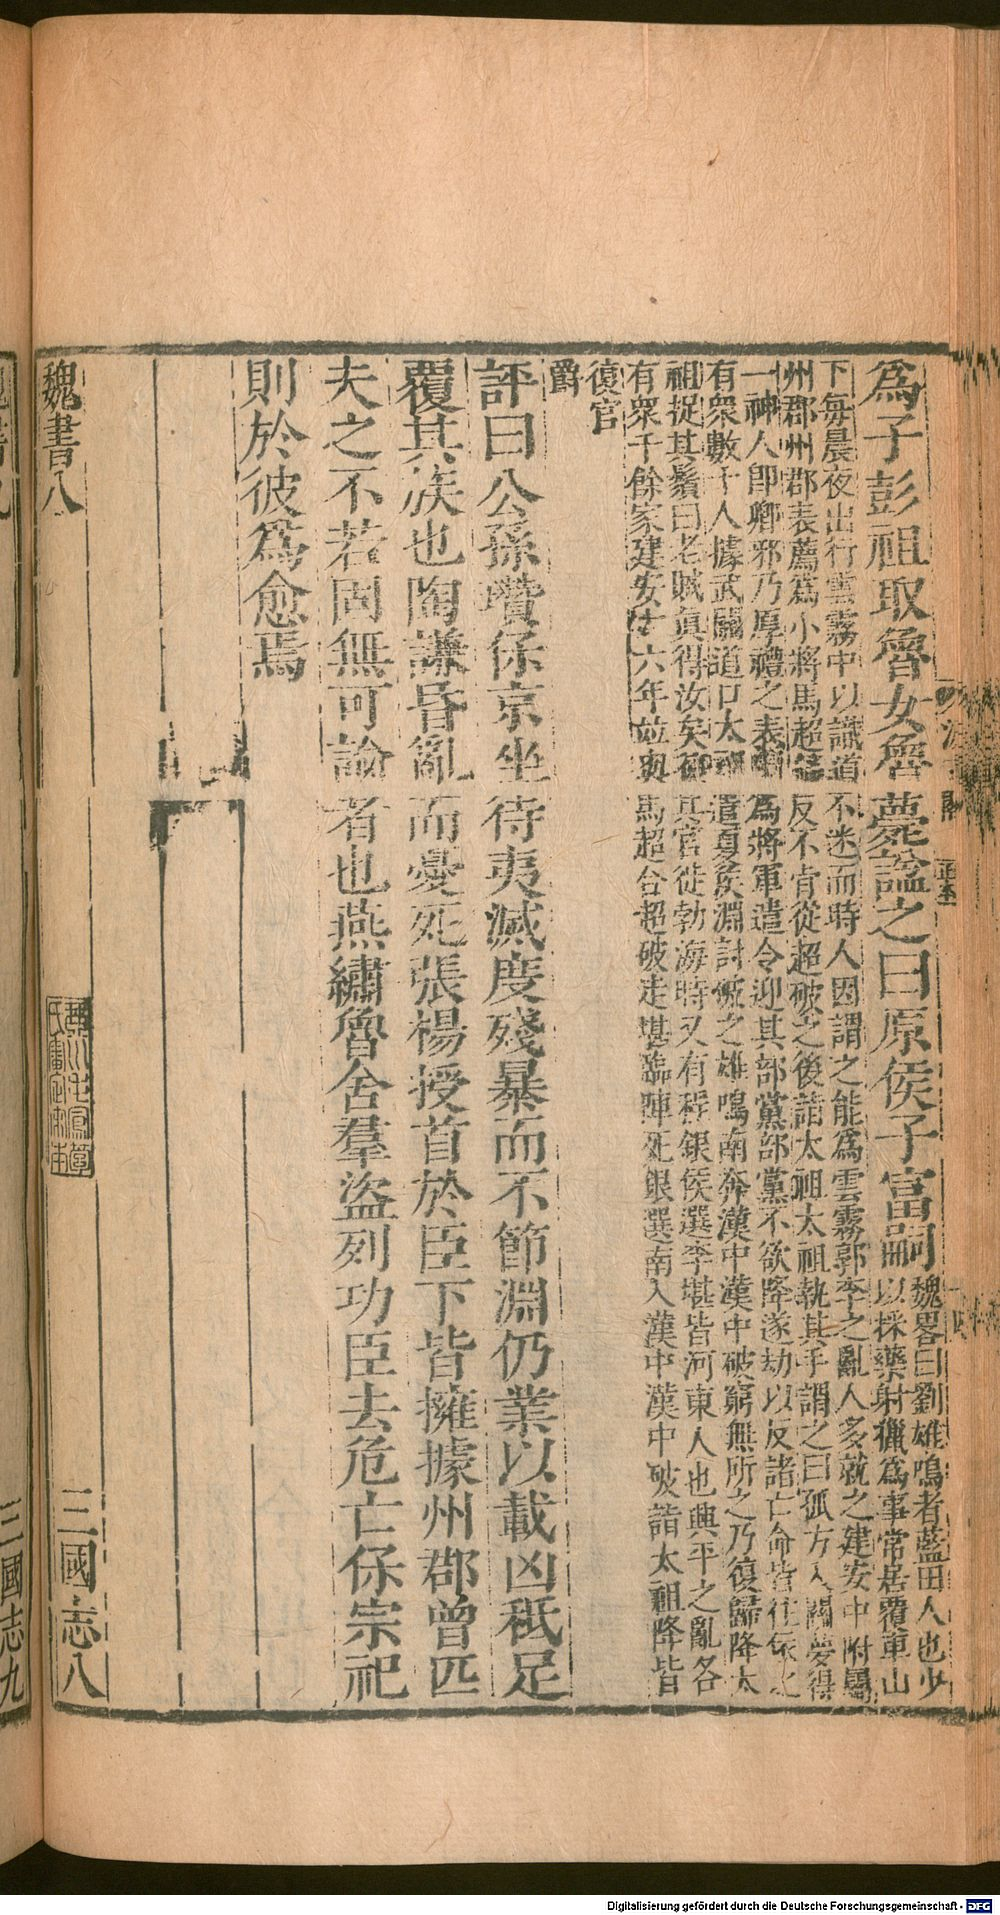 爲子彭祖取魯女魯薨諡之曰原侯子富嗣
魏畧曰劉雄鳴者藍田人也少
以採藥射獵爲事常居覆車山
下每晨夜出行雲霧中以識道不迷而時人因謂之能爲雲霧郭李之亂人多就之建安中附屬
州郡州郡表薦爲小將馬超等反不肯從超破之後詣太祖太祖執其手謂之曰孤方入關夢得
一神人卽卿邪乃厚禮之表拜爲將軍遣令迎其部黨部黨不欲降遂劫以反諸亡命皆往依之
有衆數千人據武關道口太祖遣夏侯淵討破之雄鳴南奔漢中漢中破窮無所之乃復歸降太
祖捉其鬚曰老賊眞得汝矣復其官徙勃海時又有程銀侯選李堪皆河東人也興平之亂各
有衆千餘家建安十六年並與馬超合超破走堪臨陣死銀選南入漢中漢中破詣太祖降皆
復官
爵
評曰公孫瓚保京坐待夷滅度殘暴而不節淵仍業以載凶秪足
覆其族也陶謙昏亂而憂死張楊授首於臣下皆擁據州郡曾匹
夫之不若固無可論者也燕繡魯舍羣盜列功臣去危亡保宗祀
則於彼爲愈焉
魏書八 三國志八
三國志九
Digitalisierung gefördert durch die Deutsche Forschungsgemeinschaft - DFG